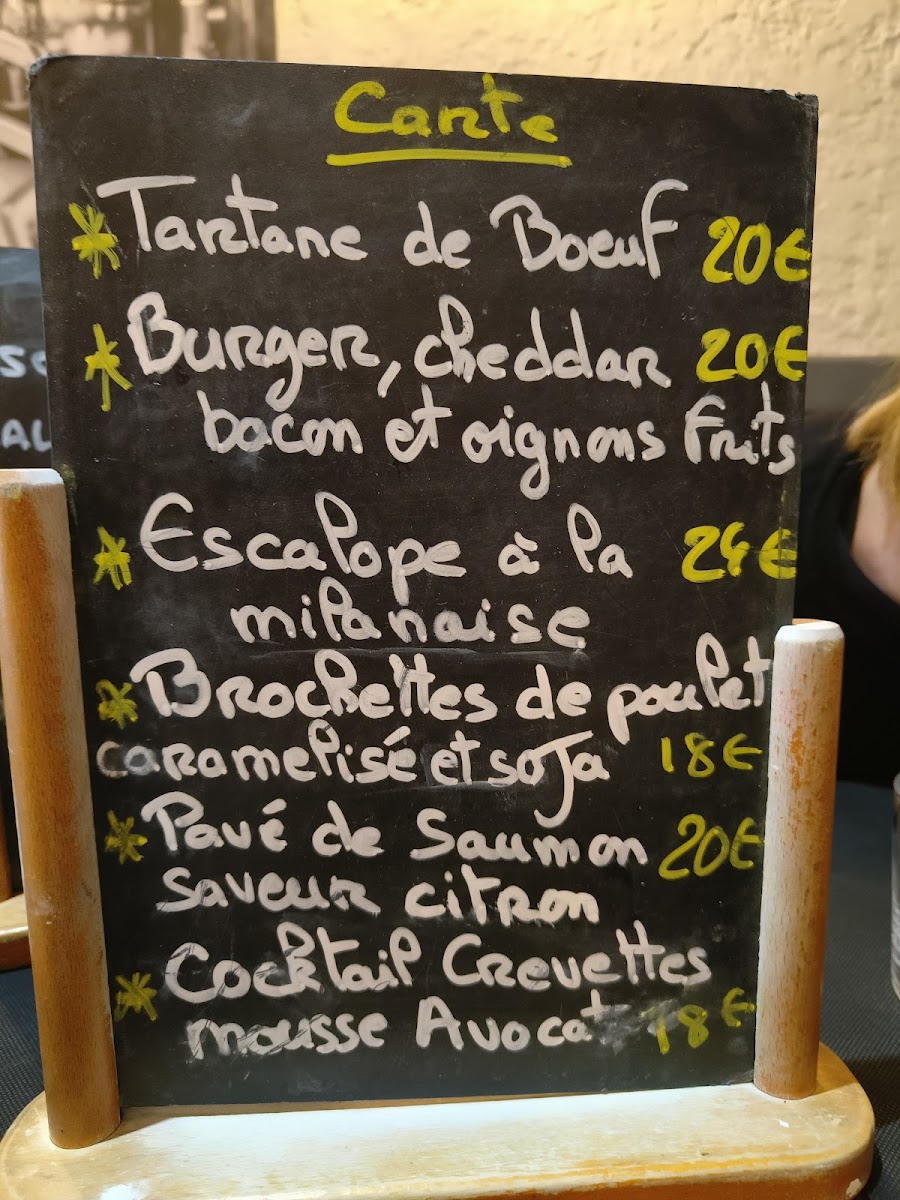 Carte
* Tartare de Boeuf 20€
* Burger, cheddar 20€
bacon et oignons frits
* Escalope à la 24€
milanaise
* Brochettes de poulet
caramelisé et soja 18€
* Pavé de Saumon 20€
saveur citron
* Cocktail Crevettes
mousse Avocat 18€